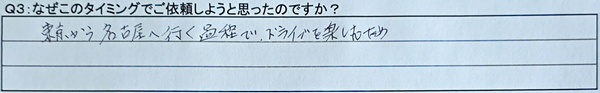 Q3：なぜこのタイミングでご依頼しようと思ったのですか？
東京から名古屋へ行く過程で、ドライブを楽しむため